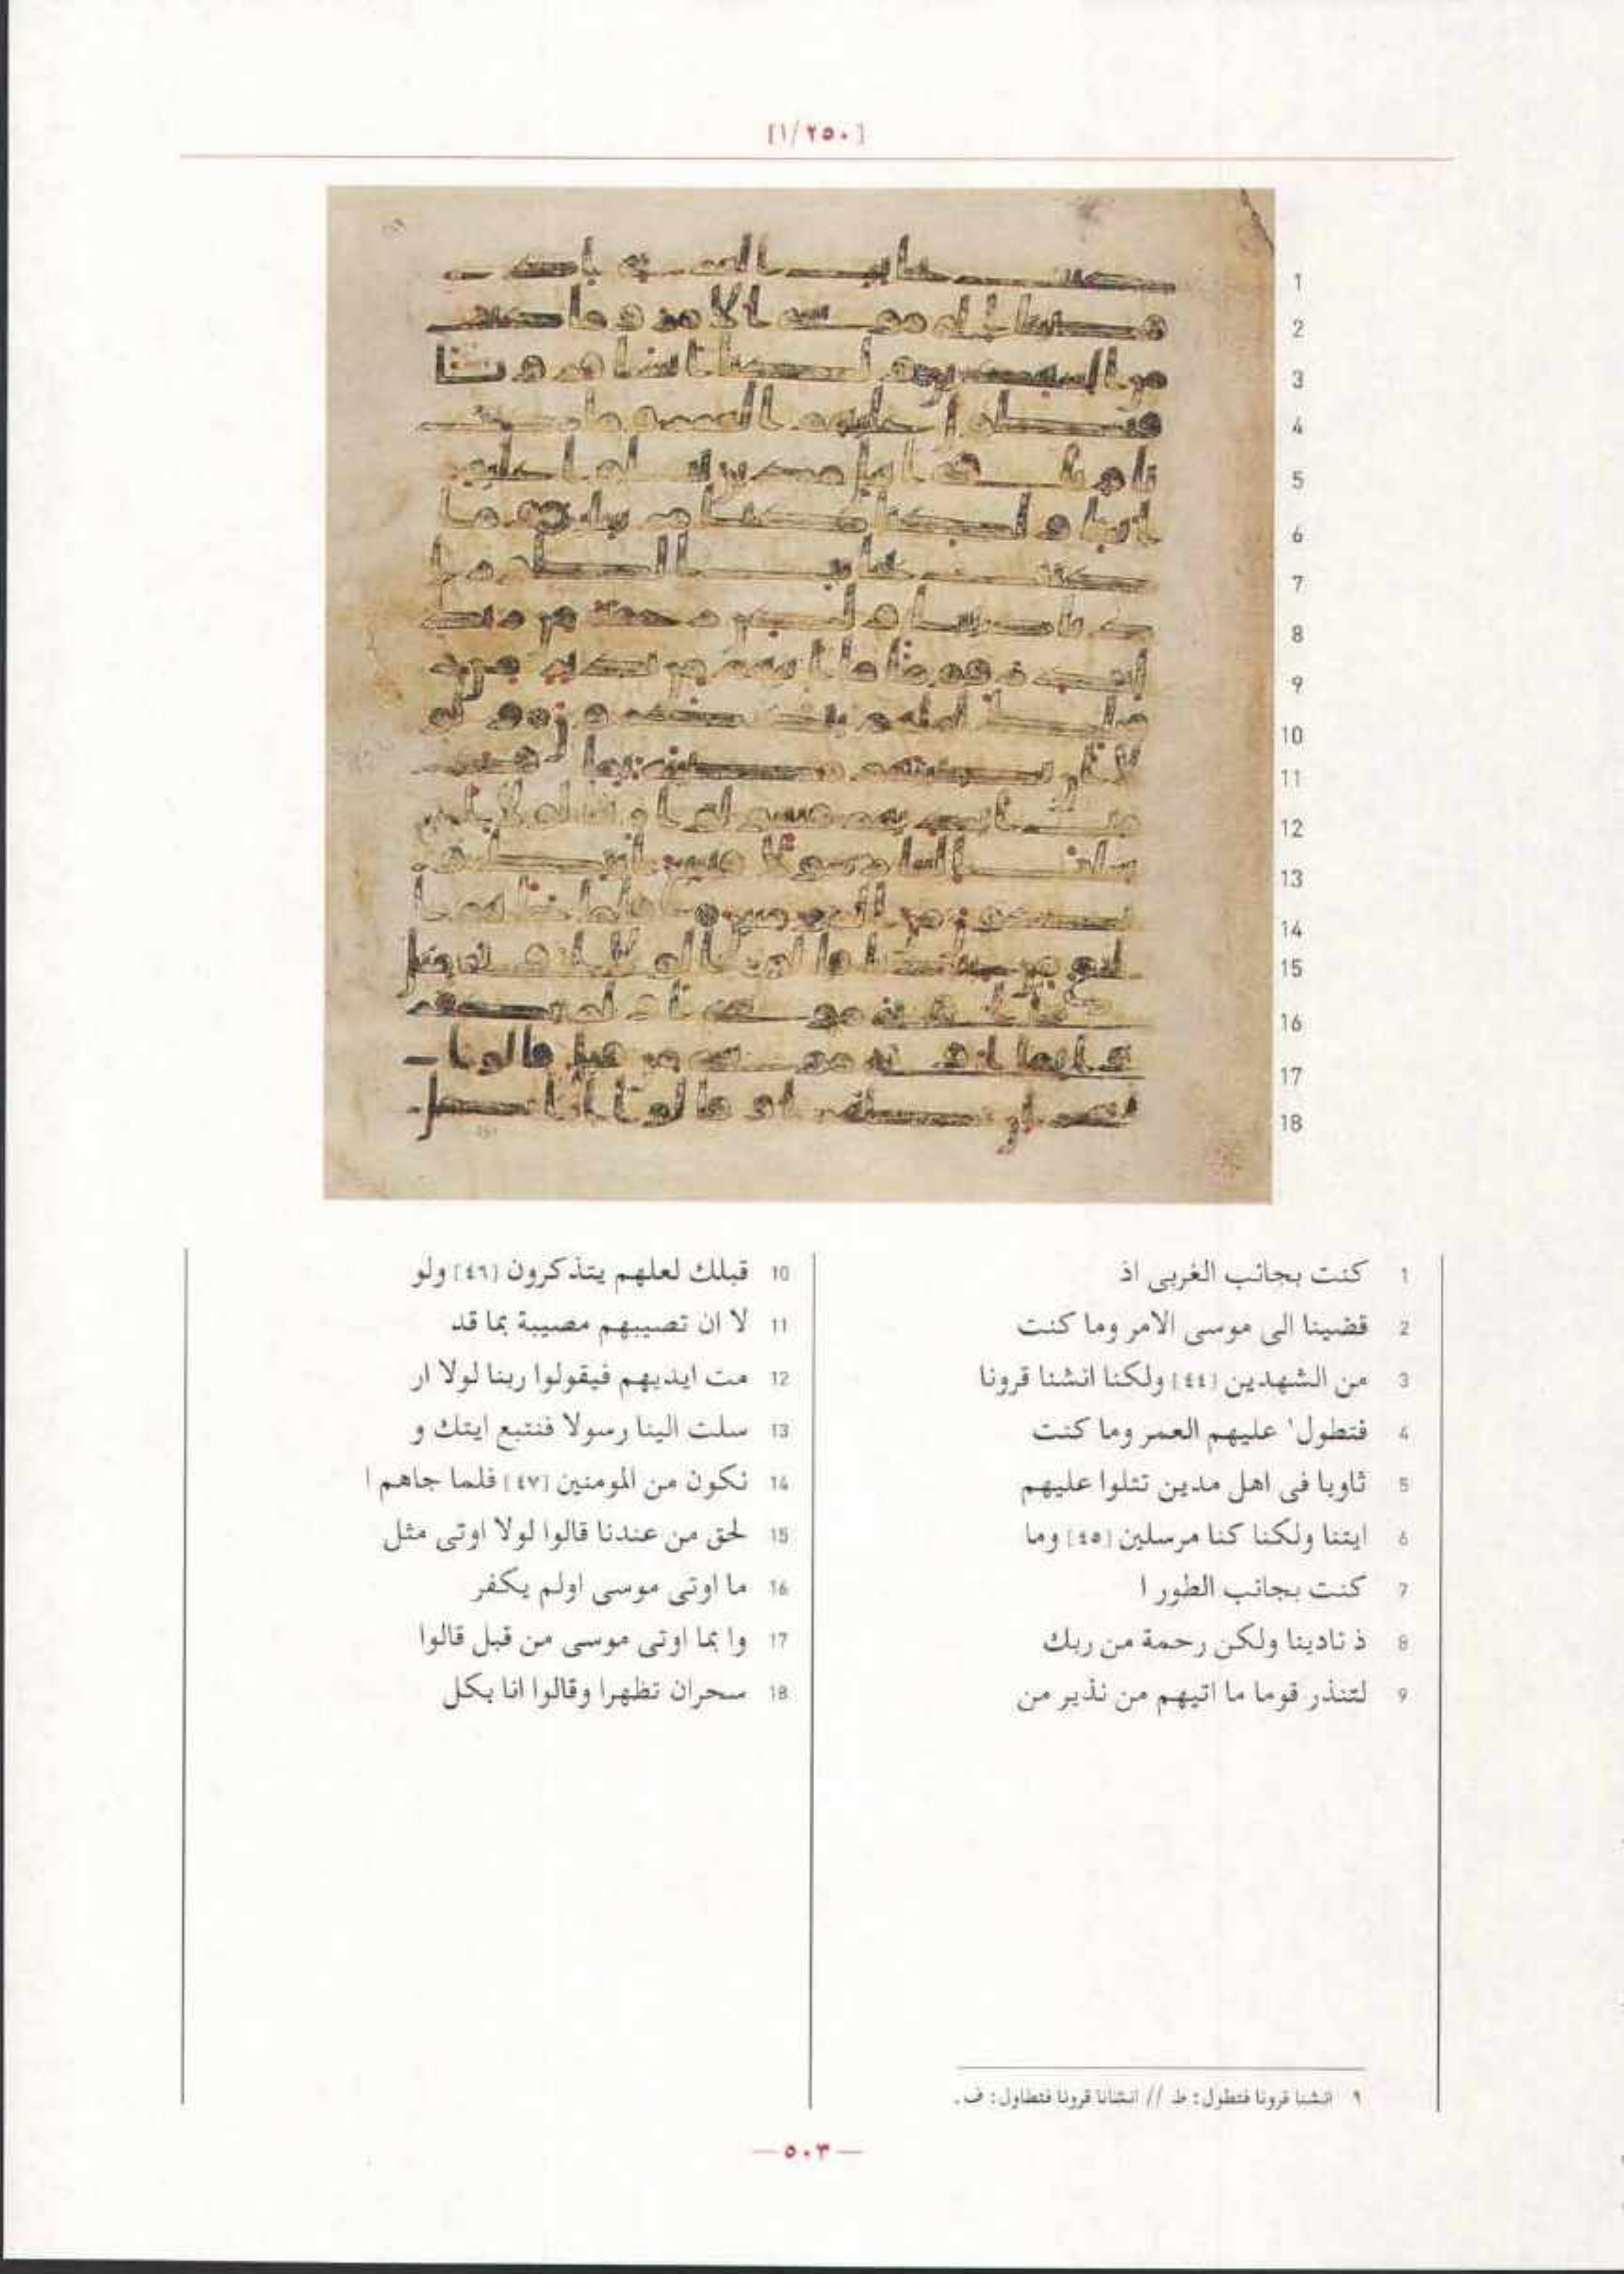 [١/٢٥٠]
1 كنت بجانب الغربى اذ
2 قضينا الى موسى الامر وما كنت
3 من الشهدين [٤٤] ولكنا انشنا قرونا
4 فتطول' عليهم العمر وما كنت
5 ثاويا فى اهل مدين تتلوا عليهم
6 ايتنا ولكنا كنا مرسلين [٤٥] وما
7 كنت بجانب الطور ا
8 ذ نادينا ولكن رحمة من ربك
9 لتنذر قوما ما اتيهم من نذير من
10 قبلك لعلهم يتذكرون [٤٦] ولو
11 لا ان تصيبهم مصيبة بما قد
12 مت ايديهم فيقولوا ربنا لولا ار
13 سلت الينا رسولا فنتبع ايتك و
14 نكون من المومنين [٤٧] فلما جاهم ا
15 لحق من عندنا قالوا لولا اوتى مثل
16 ما اوتى موسى اولم يكفر
17 وا بما اوتى موسى من قبل قالوا
18 سحران تظهرا وقالوا انا بكل
١ انشنا قرونا فتطول: ط // انشانا قرونا فتطاول: ف.
— ٥٠٣ —